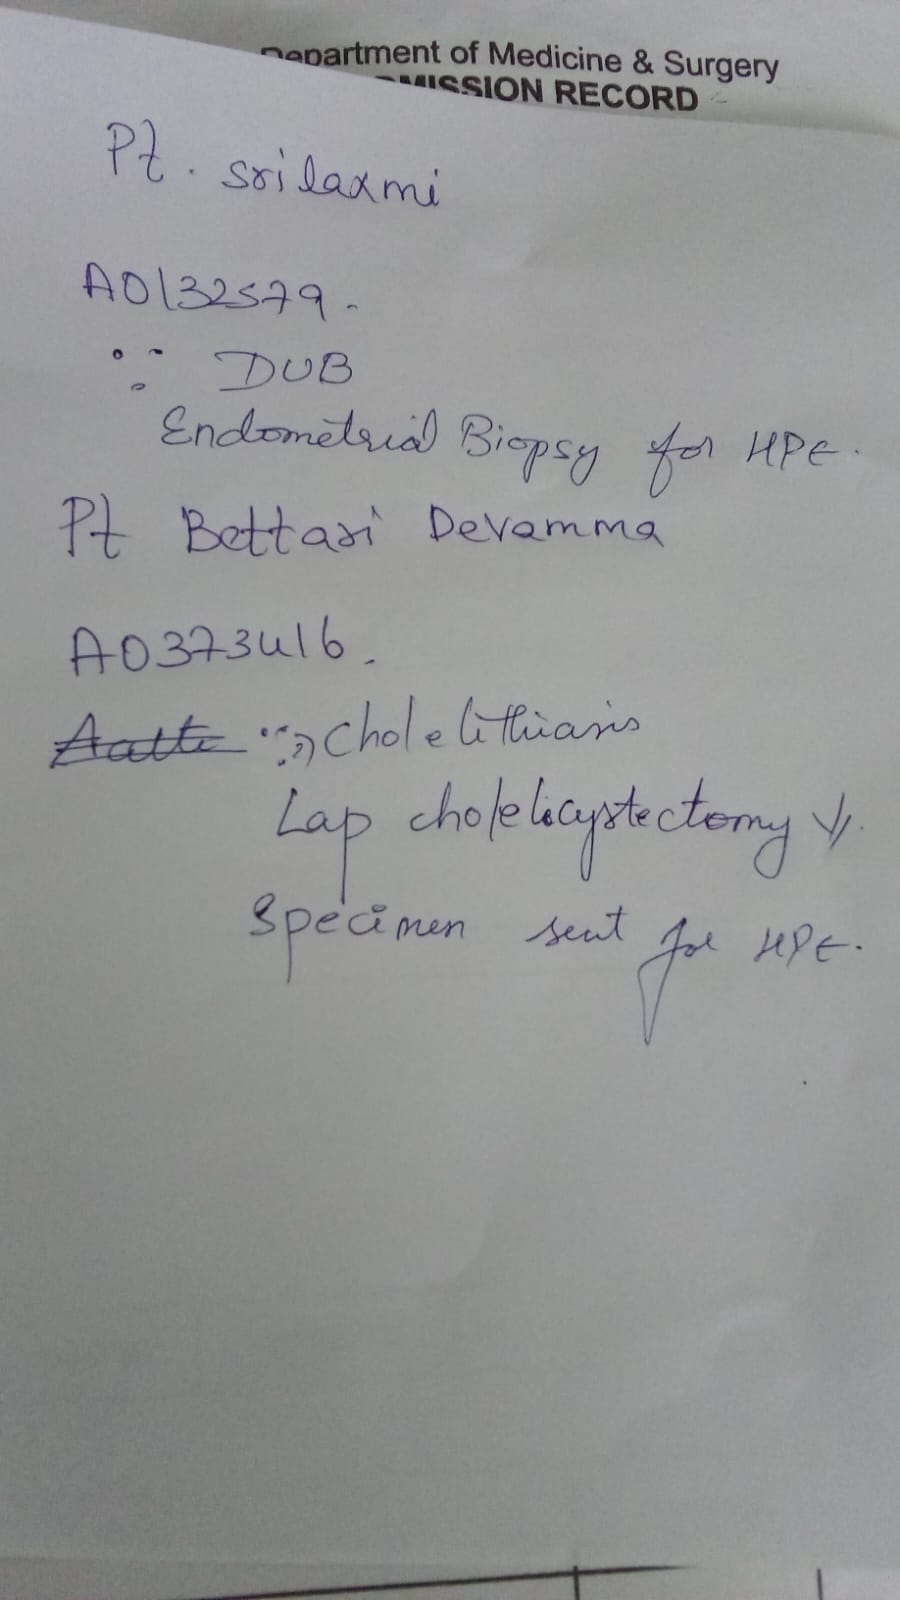 Department of Medicine & Surgery
MISSION RECORD
Pt. srilaxmi
A0132579.
DUB
Endometrial Biopsy for HPE.
Pt Bettari Devamma
A0373416.
Cholelithiasis
Lap cholelicystectomy
Specimen sent for HPE.